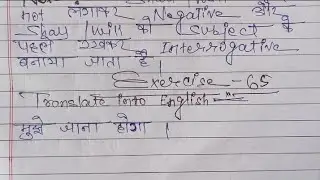 not लगाकर Negative और
Shall/Will को Subject के
पहले रखकर Interrogative
बनाया जाता है।
Exercise - 65
Translate into English -
मुझे जाना होगा।